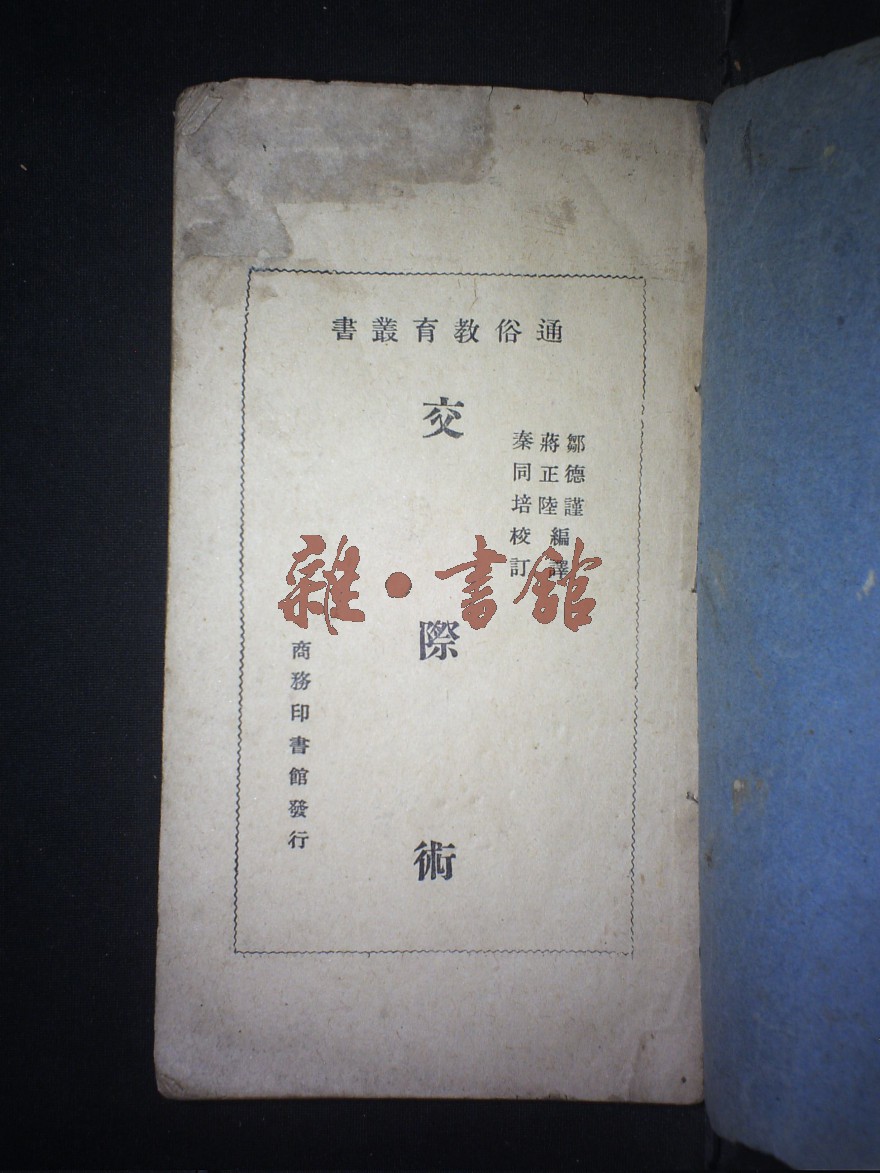 通俗教育叢書
鄒德謹
蔣正陸
編譯
秦同培校訂
交際術
商務印書館發行
雜·書館